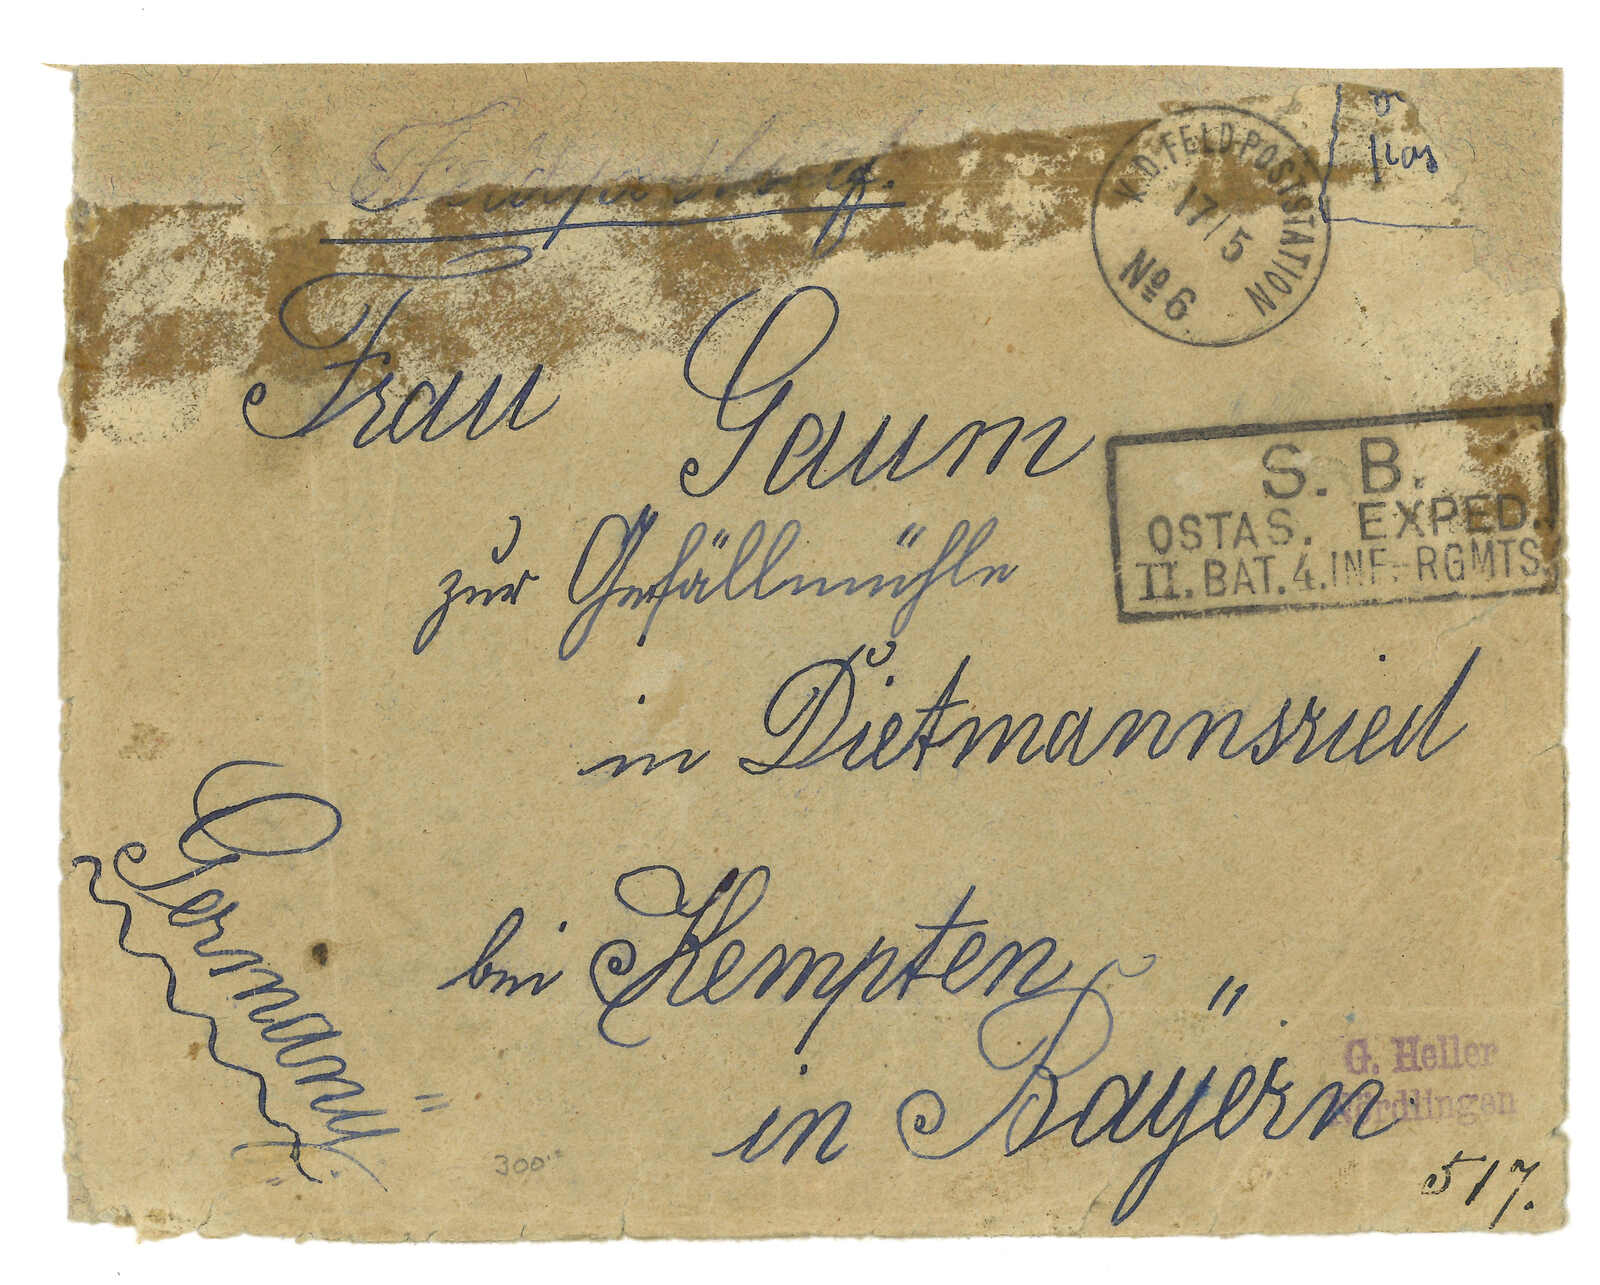 Feldpostbrief.
K.D. FELD-POSTSTATION
17/5
No 6
Frau Gaum
S. B.
OSTAS. EXPED.
II. BAT. 4. INF.-RGMTS.
zur Gefällmühle
in Dietmannsried
Germany
bei Kempten
in Bayern.
G. Heller
Nördlingen
300.-
517.